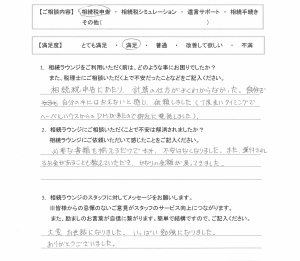 【ご相談内容】 相続税申告 ・ 相続税シミュレーション ・ 遺言サポート ・ 相続手続き
その他( )
【満足度】 とても満足 ・ 満足 ・ 普通 ・ 改善して欲しい ・ 不満
1. 相続ラウンジをご利用いただく前は、どのような事にお困りでしたか?
また、税理士にご相談いただく上で不安だったことなどをご記入ください。
相続税申告にあたり、計算の仕方がよくわからなかった。
自分の手にはおえないと感じ、依頼しました(丁度良いタイミングで
ヘーベルハウスからDMが来たので御社に電話しました)。
2. 相続ラウンジにご相談いただくことで不安は解消されましたか?
相続ラウンジにご依頼いただいて感じたことをご記入ください。
必要な書類も揃えるだけですみ、不安はなくなりました。また、
も教えていただき、
3. 相続ラウンジのスタッフに対してメッセージをお願いします。
※皆様からの忌憚のないご意見がスタッフのサービス向上につながります。
また、励ましのお言葉が自信に繋がります。簡単で結構ですので、ご記入ください。
大変お世話になりました。いっぱい勉強になりました。
ありがとうございました。